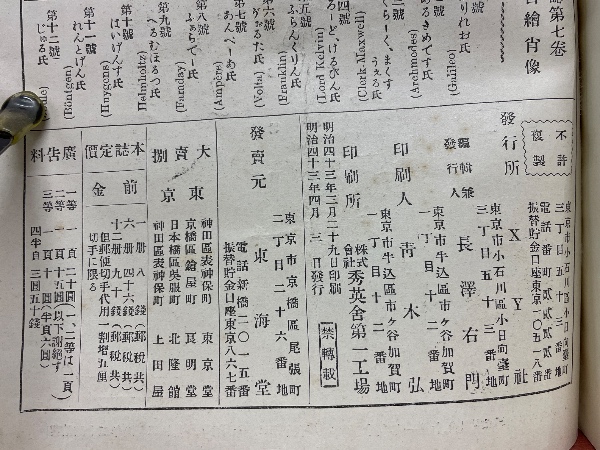 誌第七卷
口繪肖像
りれお氏
(Galileo)
あるきめです氏
(Archmodes)
くらーく、まくすうぇる氏
(Clerk Maxwell)
四號
ろーど、けるびん氏
(Lord Kelvin)
五號
ふらんくりん氏
(Franklin)
第六號
ゔおるた氏
(Volta)
第七號
あんぺーあ氏
(Ampère)
第八號
ふぁらでー氏
(Faraday)
第九號
へるむほるつ氏
Helmholtz
第十號
はいげんす氏
(Huygens)
第十一號
れんとげん氏
(Röntgen)
第十二號
じゅる氏
不許複製
東京市小石川區小日向臺町三丁目五十三番地
電話番町貳貳貳貳番
振替貯金口座東京一〇五一八番
發行所
XY社
東京市小石川區小日向臺町三丁目五十三番地
編輯兼發行人
長澤右門
東京市牛込區市ヶ谷加賀町一丁目十二番地
印刷人
青木弘
東京市牛込區市ヶ谷加賀町一丁目十二番地
印刷所
株式會社秀英舍第一工場
明治四十三年三月二十九日印刷
明治四十三年四月三日發行
禁轉載
發賣元
東京市京橋區尾張町二丁目二十六番地
東海堂
電話新橋二〇一五番
振替貯金口座東京八六七番
大賣捌
東京
神田區表神保町 東京堂
京橋區鎗屋町 良明堂
日本橋區吳服町 北隆館
神田區表神保町 上田屋
本誌定價
前金
一册 八錢(郵稅共)
六册 四十六錢(郵稅共)
十二册 九十錢(郵稅共)
但郵便切手代用一割增五厘切手に限る
廣告料
一等 一頁 二十圓(一、二等は一頁
二等 一頁 十五圓(以下謝絕す
三等 一頁 十圓(半頁六圓
四半頁三圓五十錢